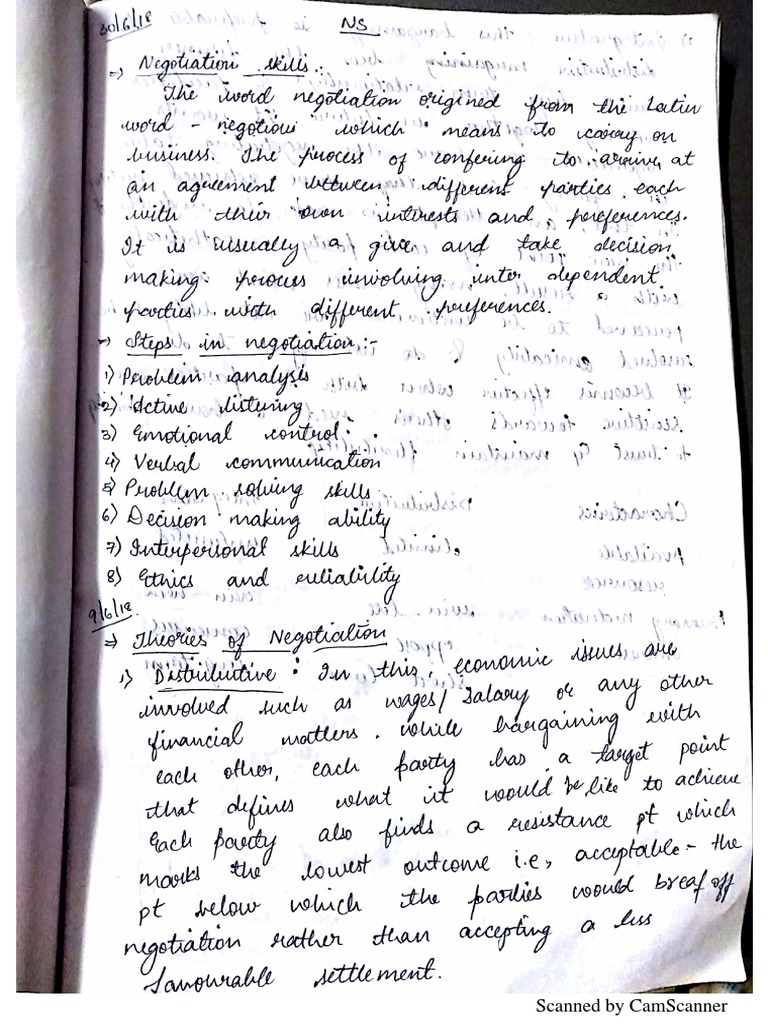 30/6/18
NS
=> Negotiation skills :-
The word negotiation origined from the Latin
word - negotious which means to carry on
business. The process of confering to arrive at
an agreement between different parties each
with their own interests and preferences.
It is usually a give and take decision
making process involving inter dependent
parties with different preferences.
-> Steps in negotiation :-
1) Problem analysis
2) Active listening
3) Emotional control
4) Verbal communication
5) Problem solving skills
6) Decision making ability
7) Interpersonal skills
8) Ethics and reliability
9/6/18
=> Theories of Negotiation
1) Distributive : In this, economic issues are
involved such as wages/ salary or any other
financial matters. while bargaining with
each other, each party has a target point
that defines what it would be like to achieve
Each party also finds a resistance pt which
marks the lowest outcome i.e, acceptable - the
pt below which the parties would breaf off
negotiation rather than accepting a less
favourable settlement.
Scanned by CamScanner